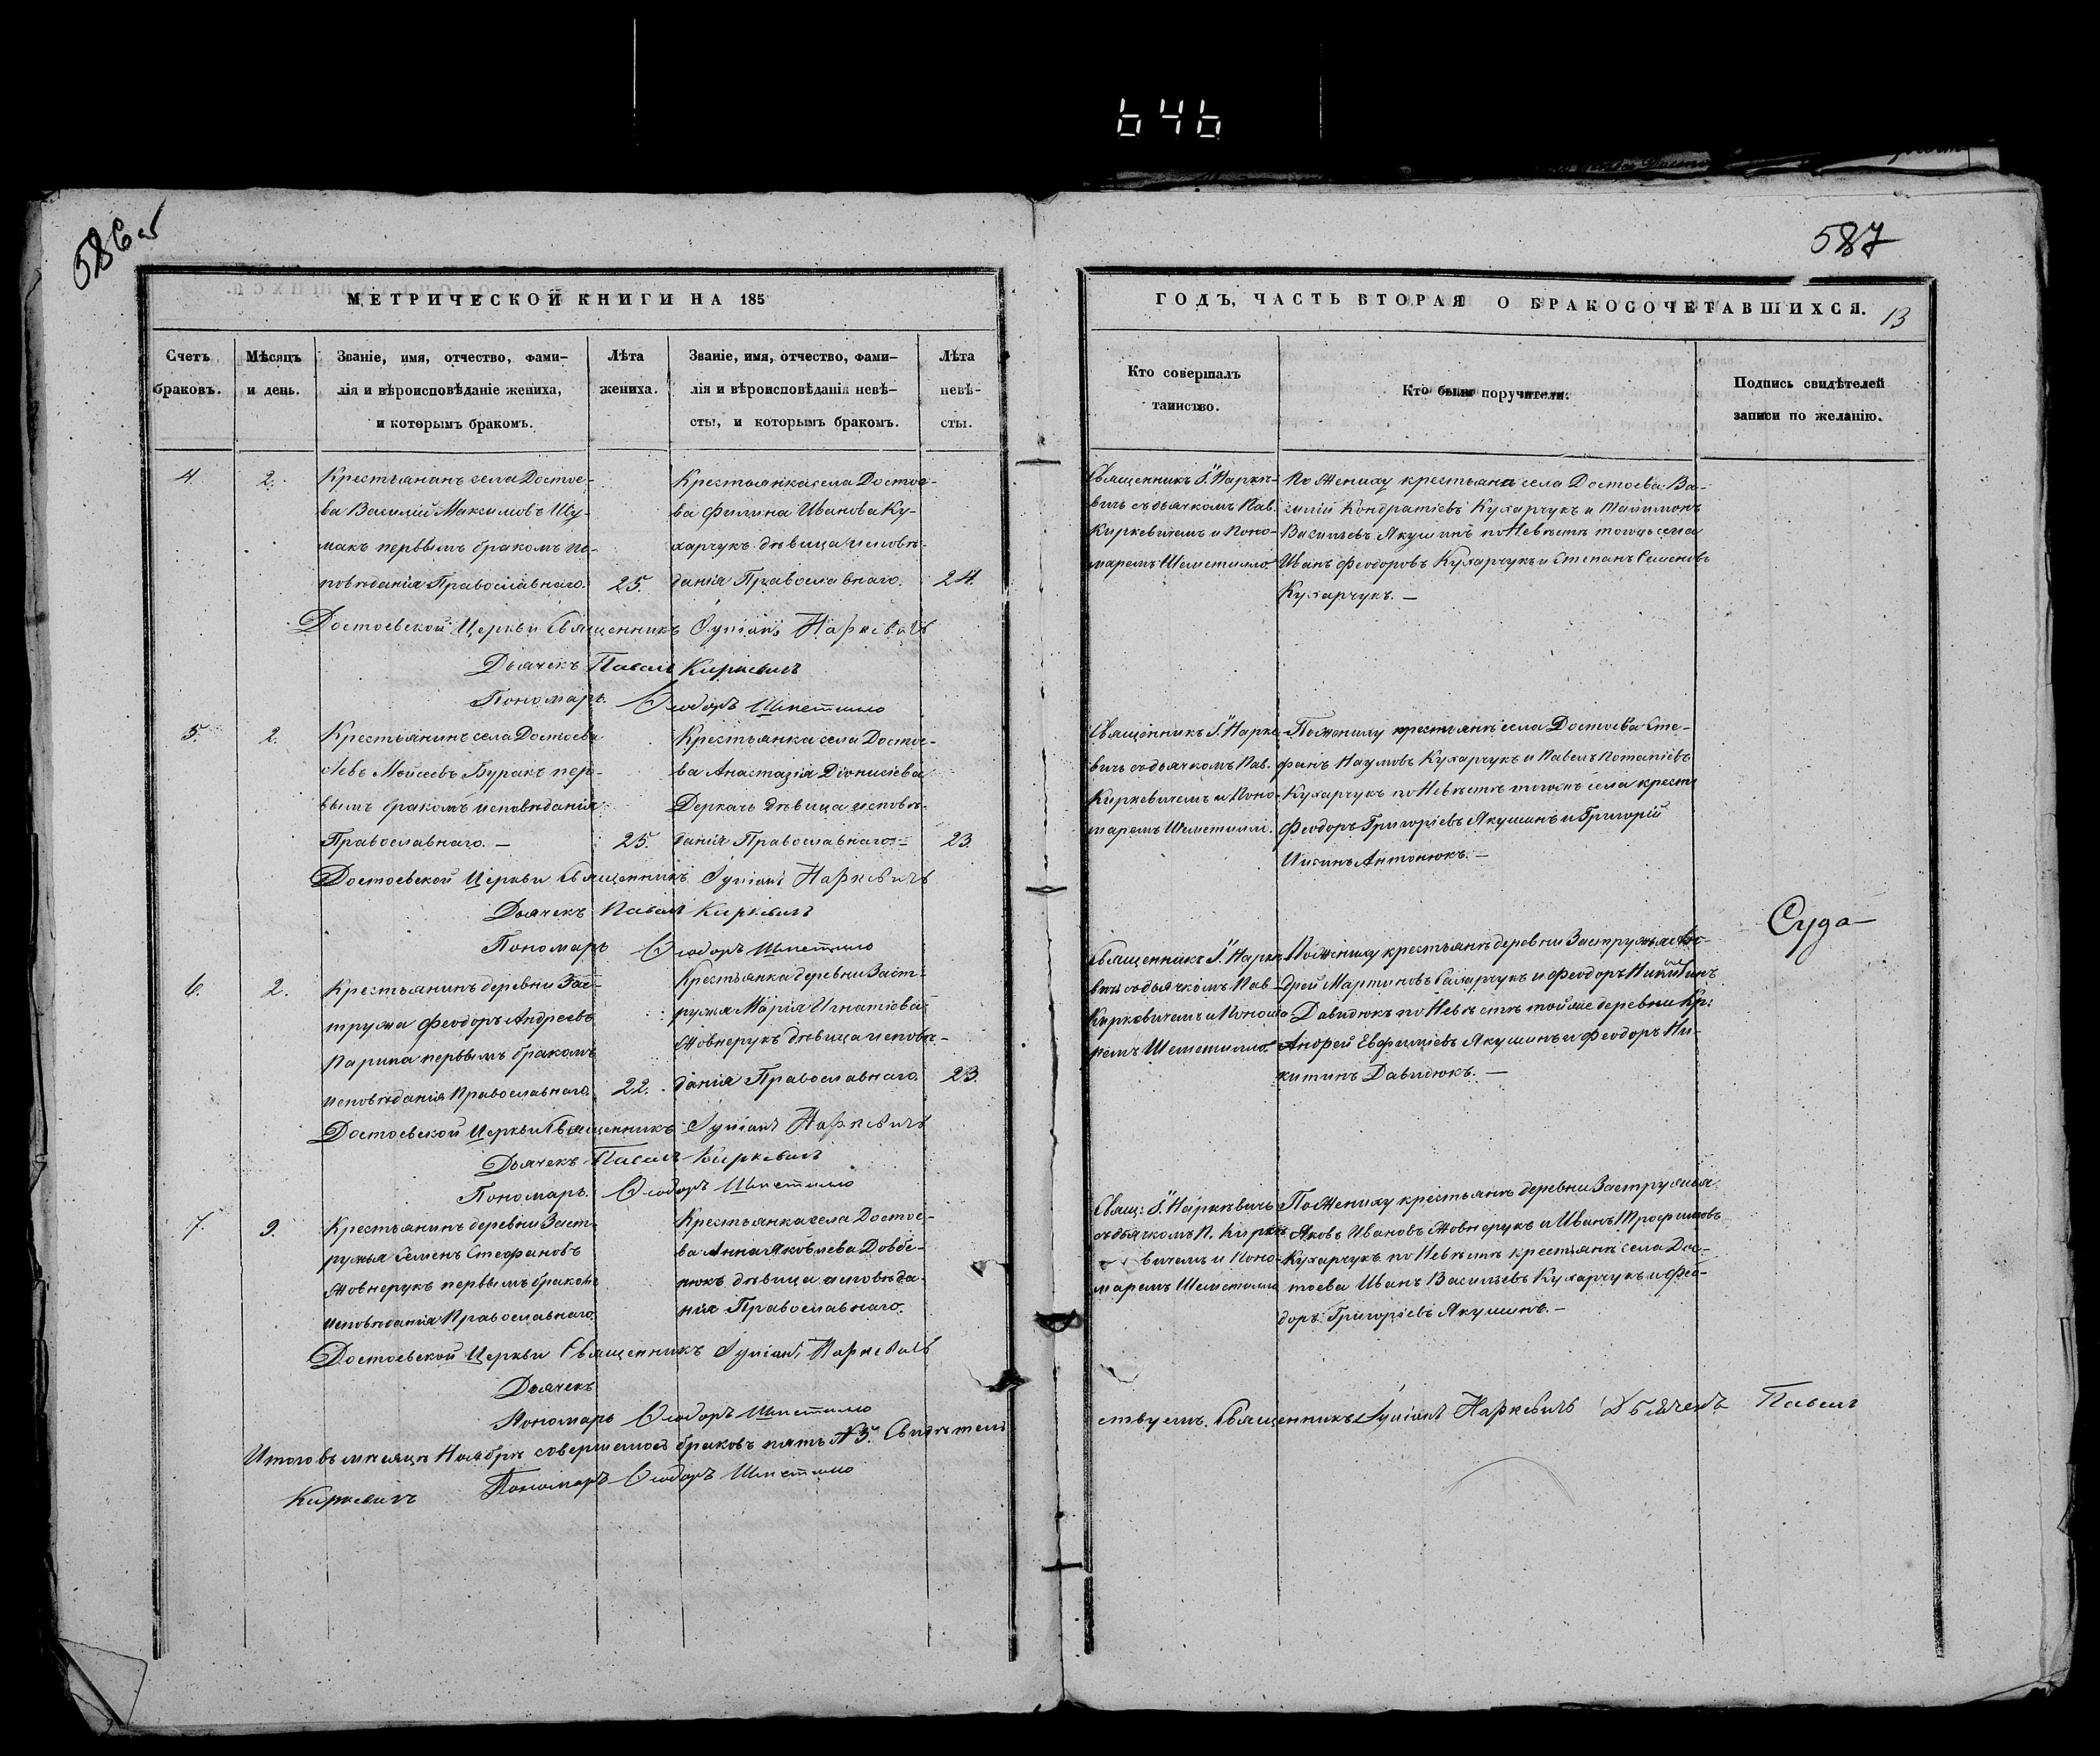 646
586 об
587
МЕТРИЧЕСКОЙ КНИГИ НА 185
ГОДЪ, ЧАСТЬ ВТОРАЯ О БРАКОСОЧЕТАВШИХСЯ.
13
Счетъ браковъ.
Мѣсяцъ и день.
Званіе, имя, отчество, фами-
лія и вѣроисповѣданіе жениха,
и которымъ бракомъ.
Лѣта
жениха.
Званіе, имя, отчество, фами-
лія и вѣроисповѣданія невѣ-
сты, и которымъ бракомъ.
Лѣта
невѣ-
сты.
Кто совершалъ
таинство.
Кто были поручители.
Подпись свидѣтелей
записи по желанію.
4.
2.
Крестьянинъ села Достое-
ва Василій Максимовъ Шу-
макъ первымъ бракомъ ис-
повѣданія Православнаго.
25.
Крестьянка села Достое-
ва Ивановa Ку-
харчукъ дѣвица исповѣ-
данія Православнаго.
24.
Священникъ І. Нарке-
вичъ съ дьячкомъ Пав.
Киркевичемъ и Поно-
маремъ Шеметилло
По Жениху крестьяне села Достоева Ва-
силій Кондратіевъ Кухарчукъ и
Васильевъ Якушинъ по Невѣстѣ тогожъ села
Иванъ Феодоровъ Кухарчукъ и Степанъ Семеновъ
Кухарчукъ. —
Достоевской Церкви Священникъ Іуліанъ Наркевичъ
Дьячекъ Павелъ Киркевичъ
Пономарь Ѳеодоръ Шеметилло
5.
2.
Крестьянинъ села Достоева
Левъ Мойсеевъ Буракъ пер-
вымъ бракомъ исповѣданія
Православнаго. —
25.
Крестьянка села Достое-
ва Анастазія Діонисіева
Деркачъ дѣвица исповѣ-
данія Православнаго —
23.
Священникъ І. Нарке-
вичъ съ дьячкомъ Пав.
Киркевичемъ и Поно-
маремъ Шеметилло.
По Жениху крестьяне села Достоева Сте-
фанъ Наумовъ Кухарчукъ и Павелъ Потапіевъ
Кухарчукъ по Невѣстѣ тогожъ села крест:
Феодоръ Григоріевъ Якушинъ и Григорій
Антонюкъ. —
Достоевской Церкви Священникъ Іуліанъ Наркевичъ
Дьячекъ Павелъ Киркевичъ
Пономарь Ѳеодоръ Шеметилло
Суда —
6.
2.
Крестьянинъ деревни Зас-
тружа Феодоръ Андреевъ
Парипа первымъ бракомъ
исповѣданія Православнаго.
22.
Крестьянка деревни Заст-
ружья Марія Игнатіева
Жовнерукъ дѣвица исповѣ-
данія Православнаго.
23.
Священникъ І. Нарке-
вичъ съ дьячкомъ Пав-
Киркевичемъ и Понома
ремъ Шеметилло.
По Жениху крестьяне деревни Застружья Ан-
дрей Мартиновъ и Феодоръ Никитинъ
Давидюкъ по Невѣстѣ тойже деревни Кр:
Андрей Евфиміевъ Якушинъ и Феодоръ Ни-
китинъ Давидюкъ. —
Достоевской Церкви Священникъ Іуліанъ Наркевичъ
Дьячекъ Павелъ Киркевичъ
Пономарь. Ѳеодоръ Шеметилло
7.
9.
Крестьянинъ деревни Заст-
ружья Семенъ Стефановъ
Жовнерукъ первымъ бракомъ
исповѣданія Православнаго.
Крестьянка села Достое-
ва Анна Яковлева Довбе-
нюкъ дѣвица исповѣда-
нія Православнаго.
Свящ: І. Наркевичъ
съ дьячкомъ П. Кирке
вичемъ и Поно-
маремъ Шеметилло
По Жениху крестьяне деревни Застружья
Яковъ Ивановъ Жовнерукъ и Иванъ Трофимовъ
Кухарчукъ по Невѣстѣ крестьяне села Дос-
тоева Иванъ Васильевъ Кухарчукъ и Фео-
доръ Григоріевъ Якушинъ. —
Достоевской Церкви Священникъ Іуліанъ Наркевичъ
Дьячекъ
Пономарь Ѳеодоръ Шеметилло
Итого въ мѣсяцѣ Ноябрѣ совершилось браковъ пять № 5. Свидѣтель
ствуемъ. Священникъ Іуліанъ Наркевичъ Дьячекъ Павелъ
Киркевичъ Пономарь Ѳеодоръ Шеметилло